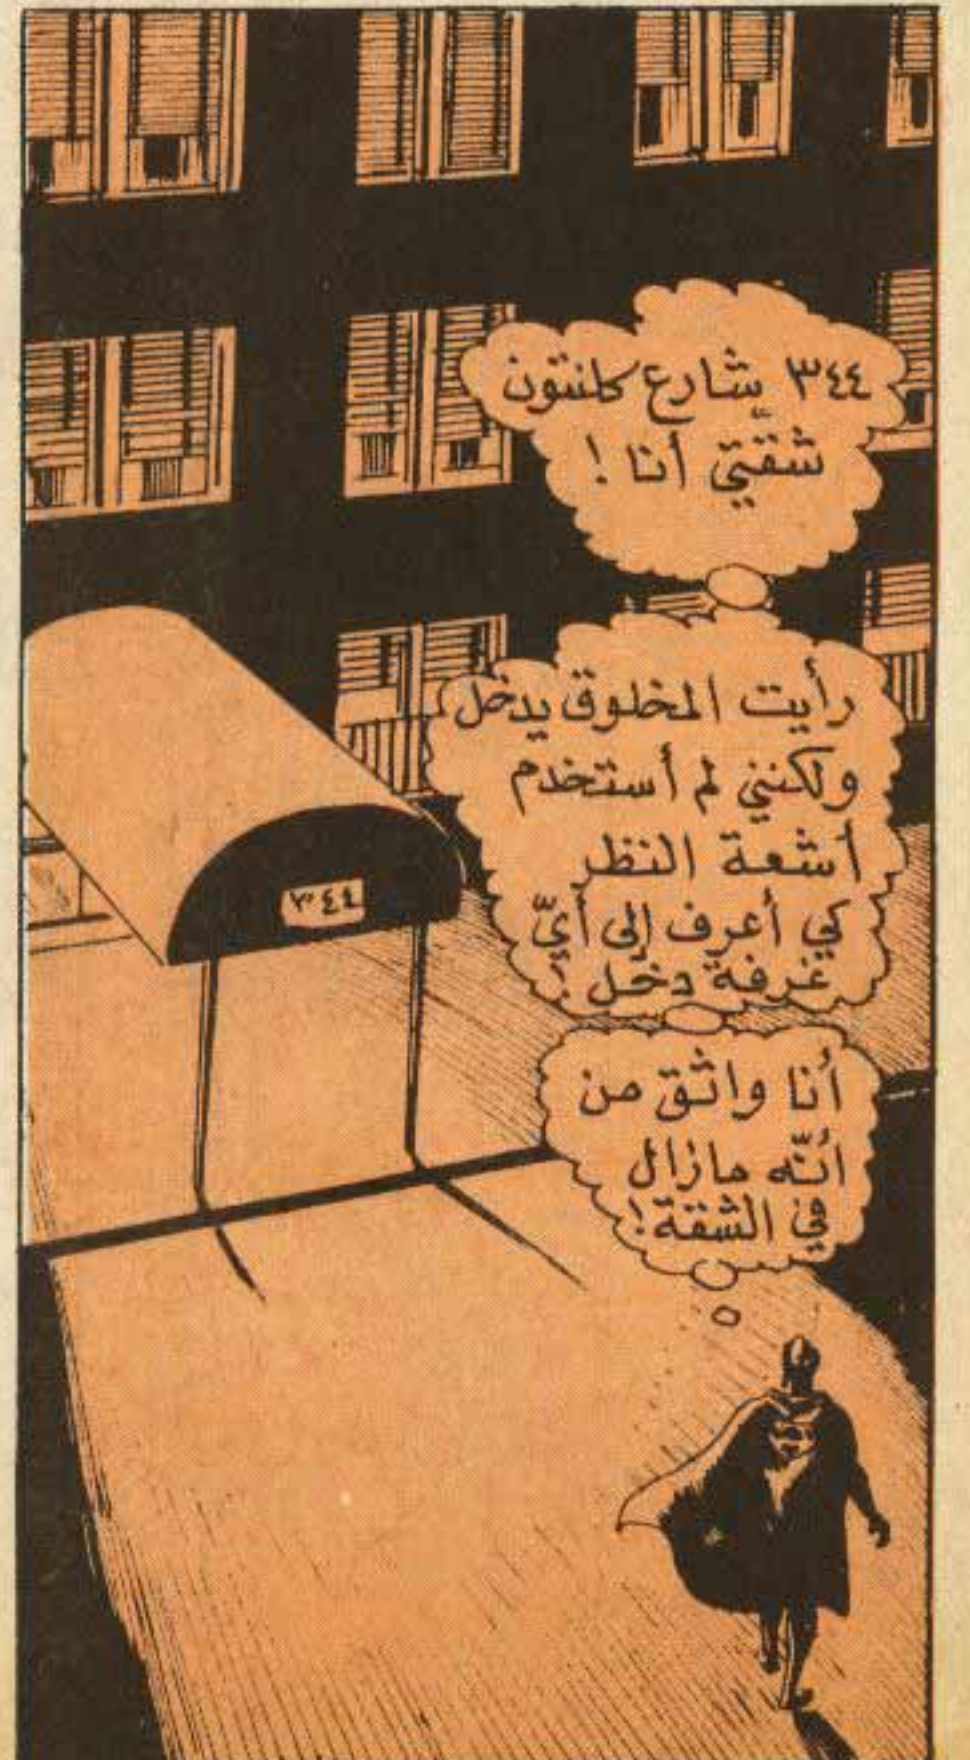 ٣٤٤ شارع كلنتون
شقتي أنا !
رأيت المخلوق يدخل
ولكنني لم أستخدم
أشعة النظر
كي أعرف إلى أيّ
غرفة دخل !
٣٤٤
أنا واثق من
أنّه مازال
في الشقة !